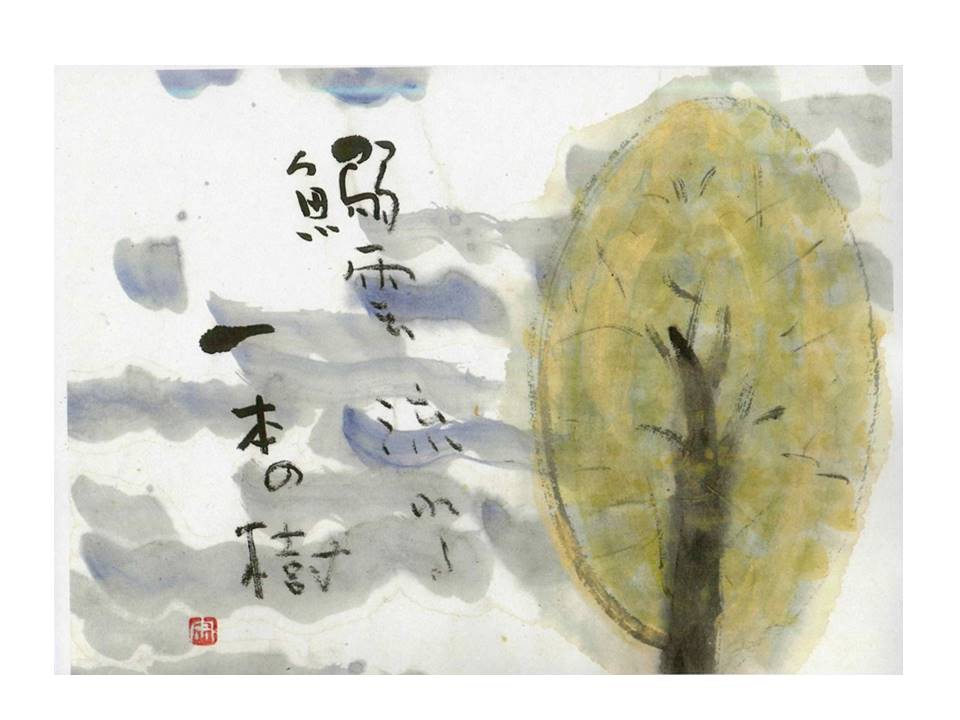 鰯雲流れ
一本の樹